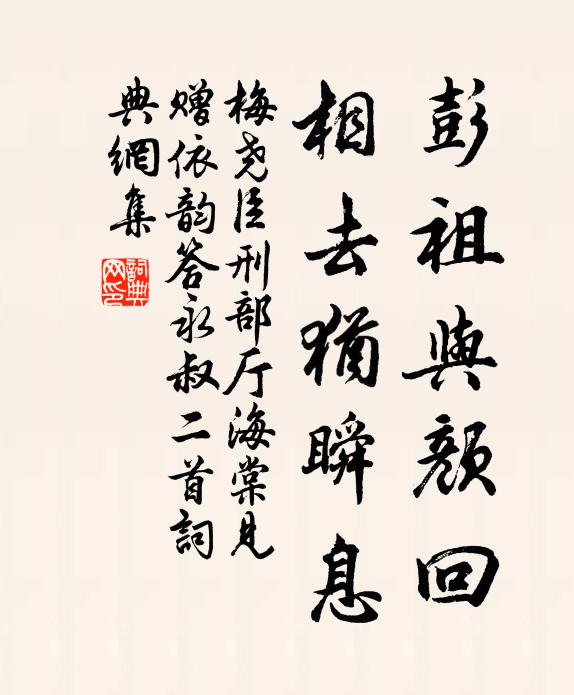 彭祖與顏回
相去猶瞬息
梅尧臣刑部厅海棠見
赠依韵答永叔二首詞
典網集
詞典
网印